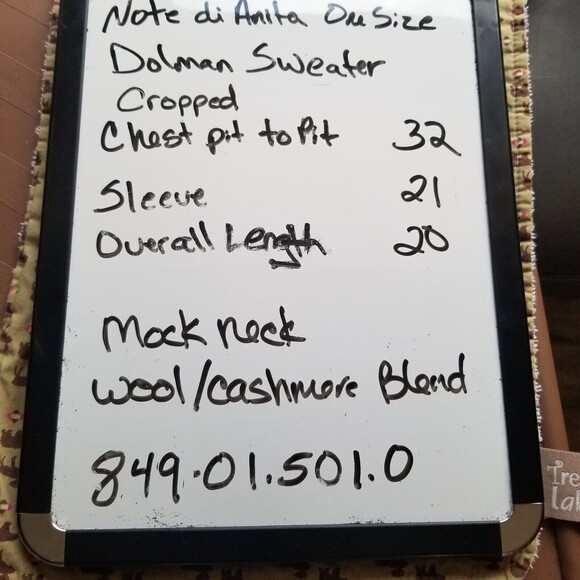 Note di Anita One Size
Dolman Sweater
Cropped
Chest pit to Pit 32
Sleeve 21
Overall Length 20
Mock neck
wool/cashmere Blend
849.01.501.0
Tre
Lab